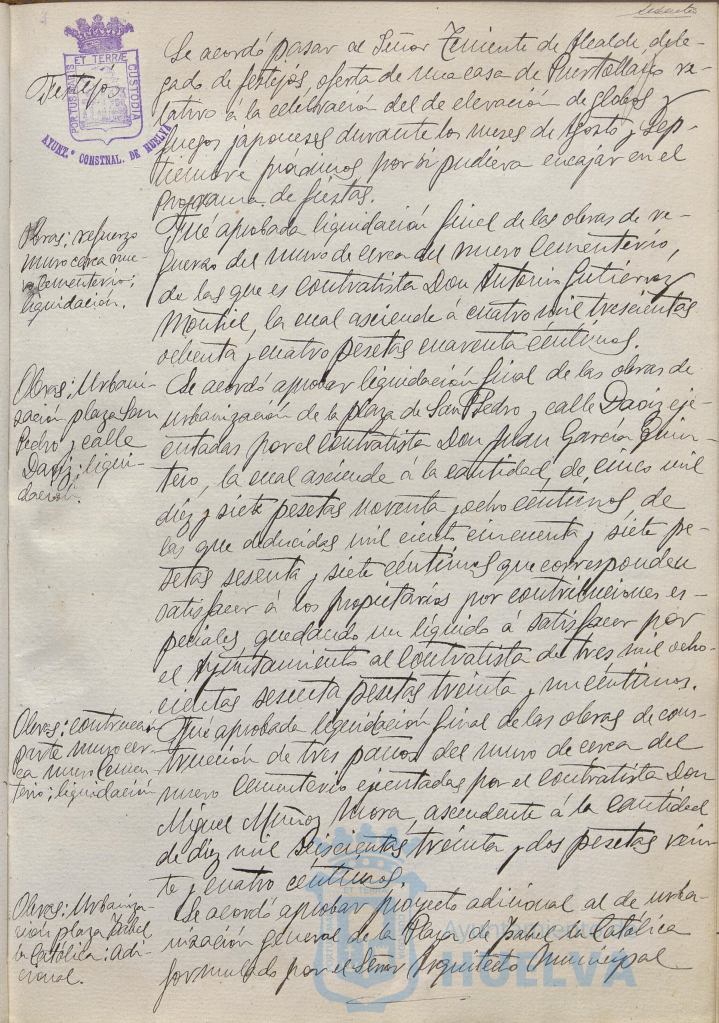 Festejos
Se acordó pasar al Señor Teniente de Alcalde, dele-
gado de festejos, oferta de una casa de Puertollano re-
lativo á la celebración del de elevación de globos y
fuegos japoneses durante los meses de Agosto y Sep-
tiembre próximos por si pudiera encajar en el
programa de fiestas.
Obras; refuerzo
muro cerca nue-
vo Cementerio;
liquidación.
Fué aprobada liquidación final de las obras de re-
fuerzo del muro de cerca del nuevo Cementerio,
de las que es contratista Don Antonio Gutiérrez
Montiel, la cual asciende á cuatro mil trescientas
ochenta y cuatro pesetas cuarenta céntimos.
Obras; Urbani-
zación plaza San
Pedro y calle
Daoiz; liqui-
dación.
Se acordó aprobar liquidación final de las obras de
urbanización de la plaza de San Pedro y calle Daoiz eje-
cutadas por el contratista Don Juan García Quin-
tero, la cual asciende á la cantidad de cinco mil
diez y siete pesetas noventa y ocho céntimos, de
las que deducidas mil ciento cincuenta y siete pe-
setas sesenta y siete céntimos que corresponden
satisfacer á los propietarios por contribuciones es-
peciales quedando un líquido á satisfacer por
el Ayuntamiento al Contratista de tres mil ocho-
cientas sesenta pesetas treinta y un céntimos.
Obras: contrucción
parte muro cer-
ca nuevo Cemen-
terio; liquidación
Fué aprobada liquidación final de las obras de cons-
trucción de tres paños del muro de cerca del
nuevo Cementerio ejecutadas por el contratista Don
Miguel Muñoz Mora, ascendente á la cantidad
de diez mil seiscientas treinta y dos pesetas vein-
te y cuatro céntimos.
Obras: Urbaniza-
ción plaza Isabel
la Católica: adi-
cional.
Se acordó aprobar proyecto adicional al de urba-
nización general de la Plaza de Isabel la Católica
formulado por el Señor Arquitecto Municipal
PORTUS MARIS ET TERRÆ CUSTODIA
AYUNT.º CONSTNAL. DE HUELVA
Ayuntamiento de
HUELVA